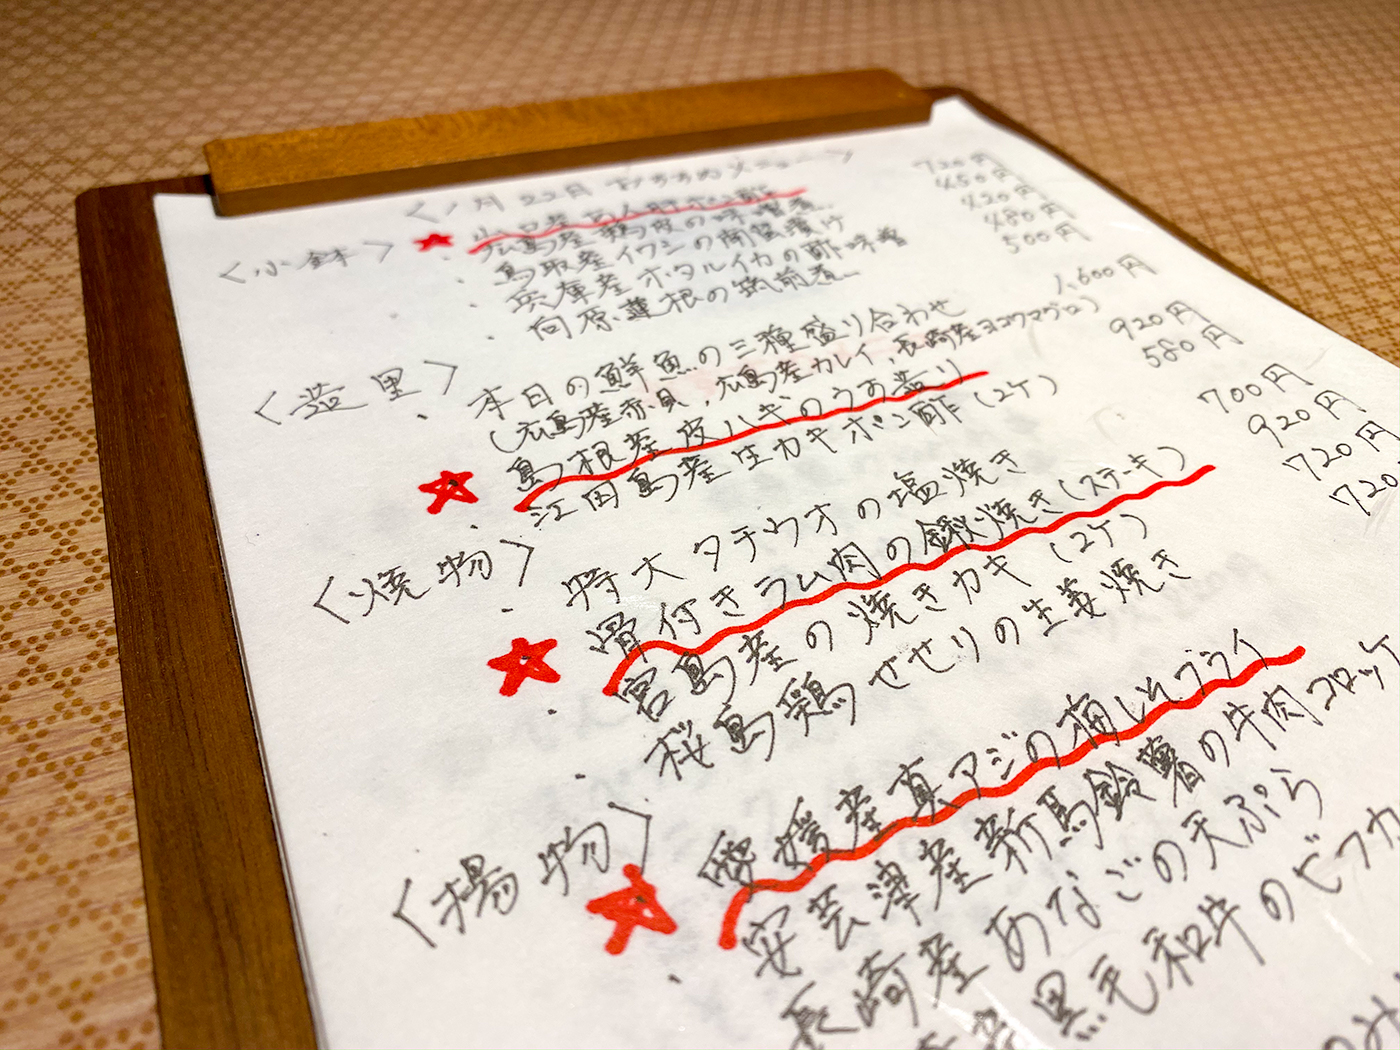 〈1月22日 おすすめメニュー〉
〈小鉢〉
山口産 あん肝ポン酢 720円
広島産 鶏皮の味噌煮 450円
鳥取産イワシの南蛮漬け 420円
兵庫産ホタルイカの酢味噌 480円
向原蓮根の筑前煮 500円
〈造里〉
本日の鮮魚の三種盛り合わせ 1,600円
(広島産赤貝、広島産カレイ、長崎産ヨコワマグロ)
島根産皮ハギのうす造り 920円
江田島産生カキポン酢(2ケ) 580円
〈焼物〉
特大タチウオの塩焼き 700円
骨付きラム肉の鍬焼き(ステーキ) 920円
宮島産の焼きカキ(2ケ) 720円
桜島鶏せせりの生姜焼き 720
〈揚物〉
愛媛産真アジの梅しそフライ
安芸津産新馬鈴薯の牛肉コロッケ
長崎産あなごの天ぷら
黒毛和牛のビフカ